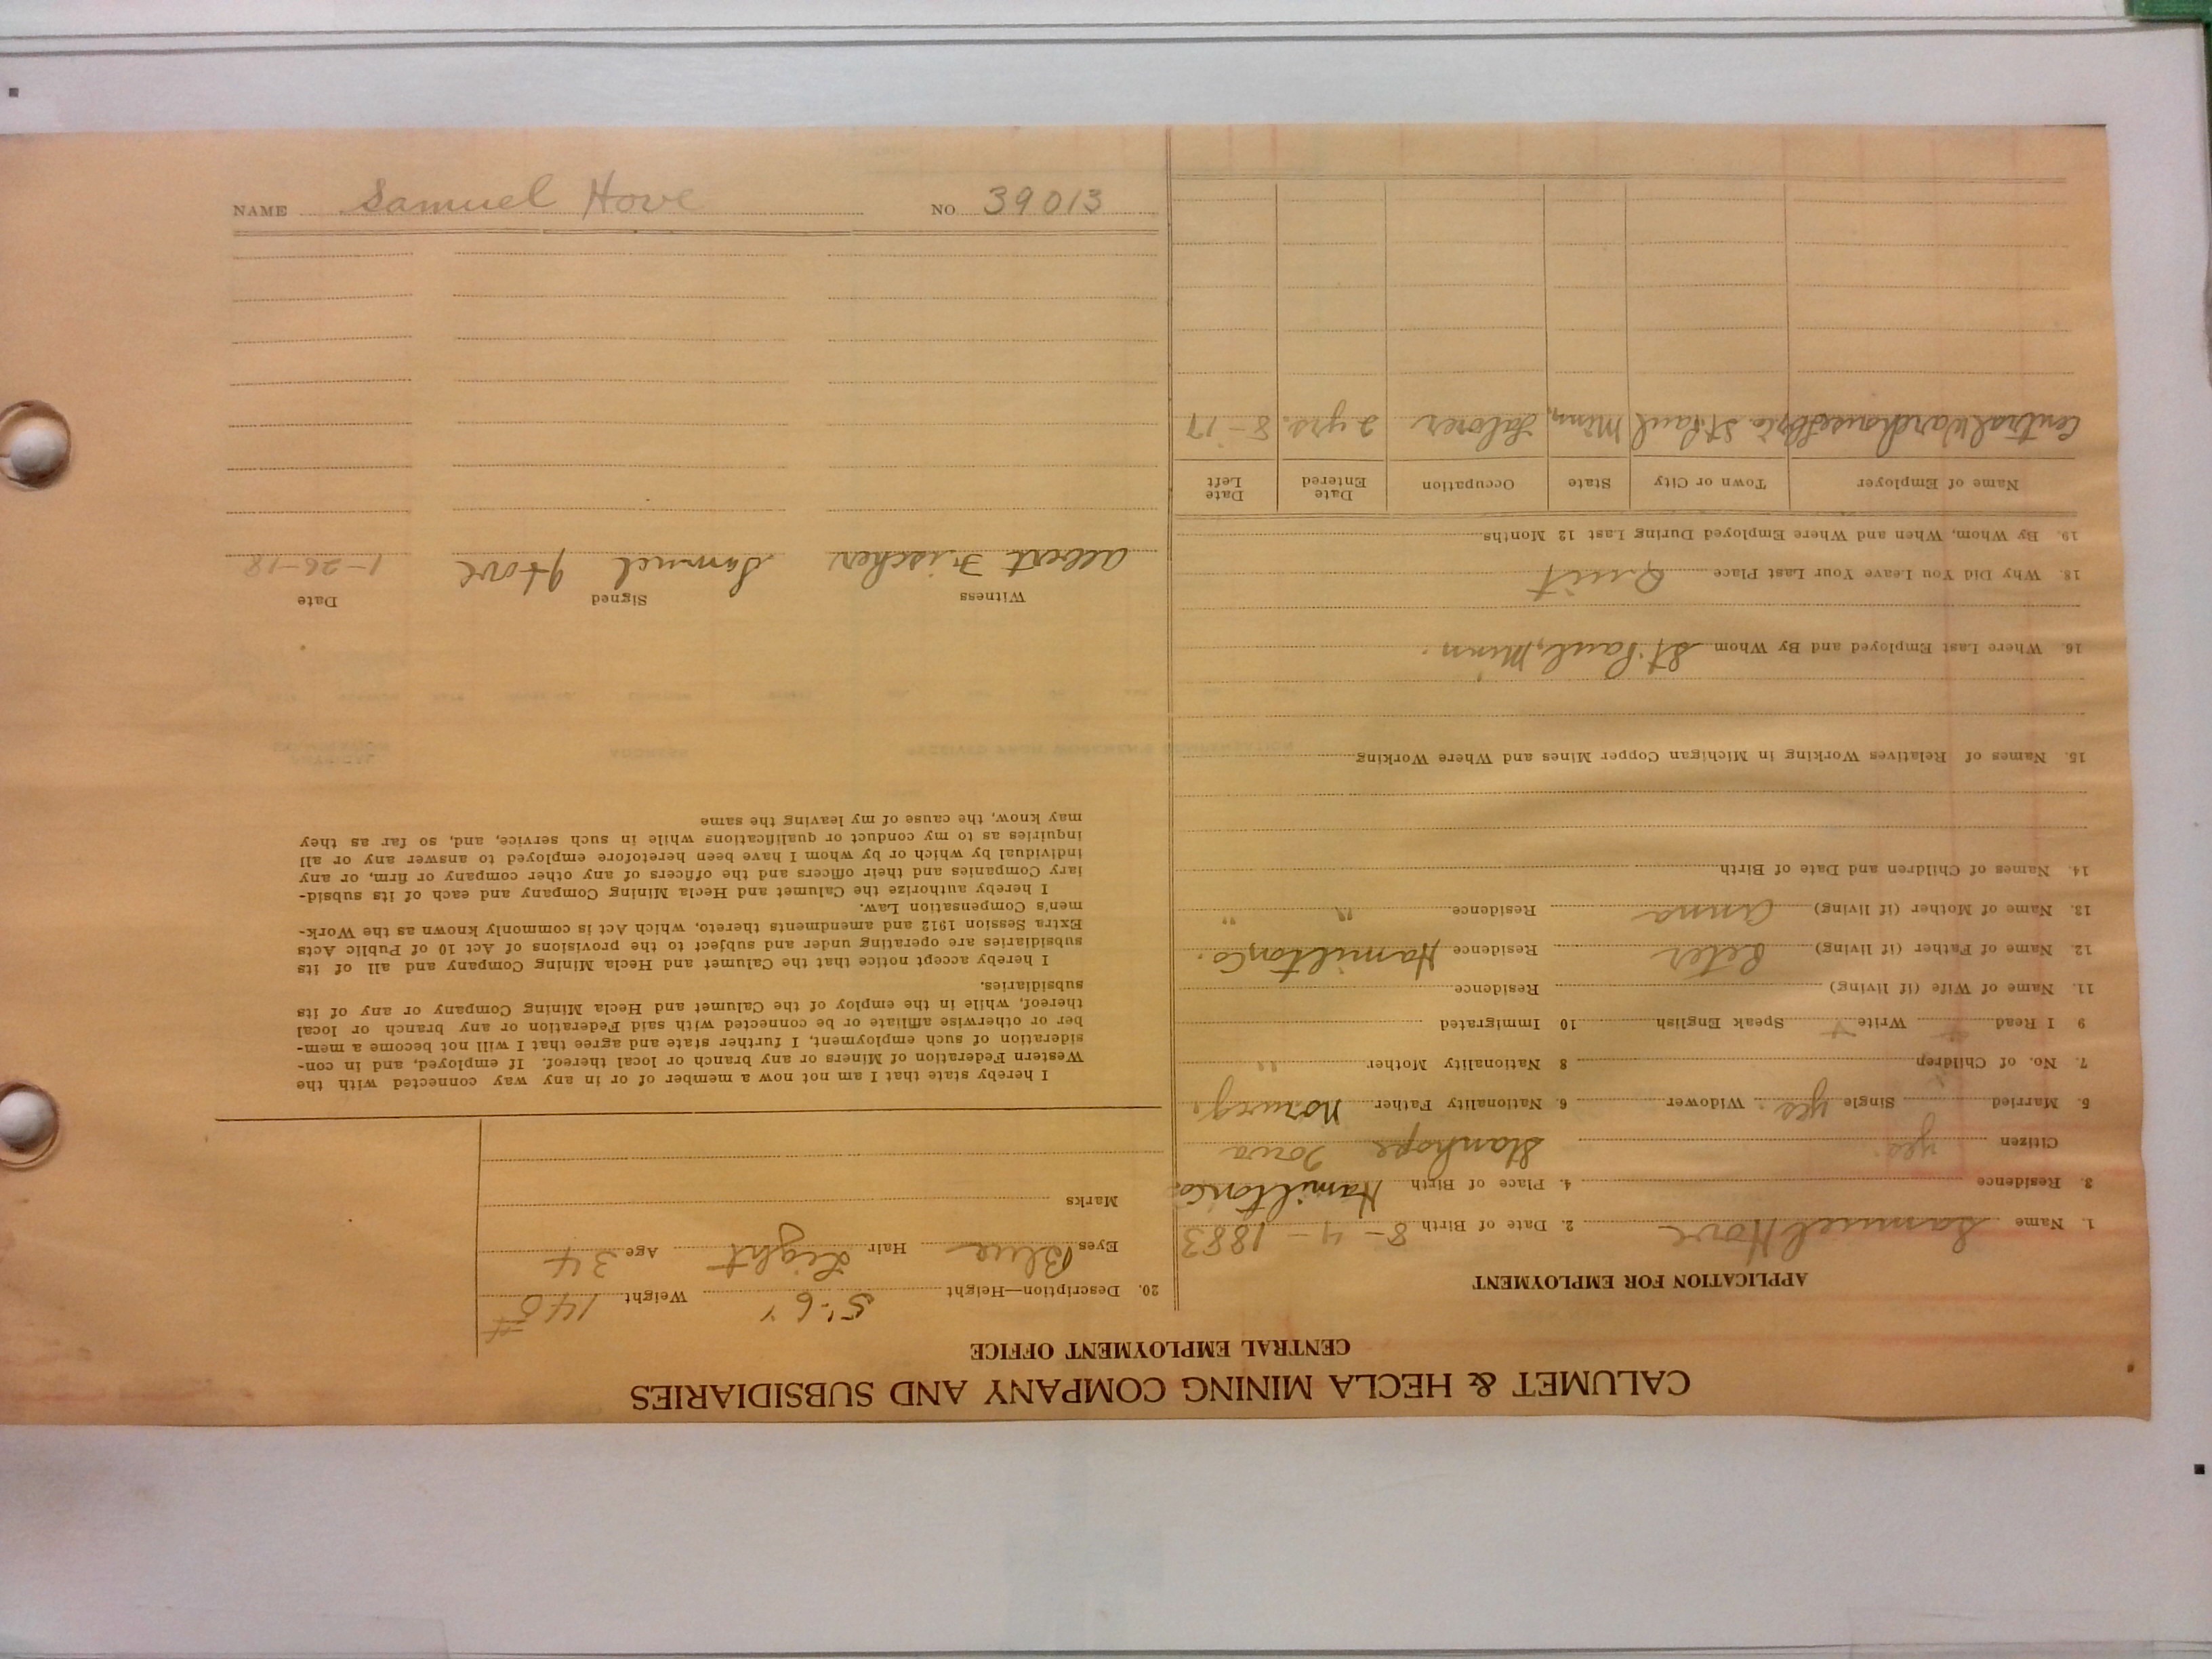 CALUMET & HECLA MINING COMPANY AND SUBSIDIARIES
CENTRAL EMPLOYMENT OFFICE
APPLICATION FOR EMPLOYMENT
1. Name Samuel Hove 2. Date of Birth 8-4-1883
3. Residence 4. Place of Birth Hamilton Co.
Citizen yes. Stanhope Iowa
5. Married Single yes. Widower 6. Nationality Father Norweg.
7. No. of Children 8 Nationality Mother " "
9 I Read Write Speak English 10 Immigrated
11. Name of Wife (if living) Residence
12. Name of Father (if living) Peter Residence Hamilton Co.
13. Name of Mother (if living) Anna Residence " "
14. Names of Children and Date of Birth
15. Names of Relatives Working in Michigan Copper Mines and Where Working
16. Where Last Employed and By Whom St. Paul, Minn.
18. Why Did You Leave Your Last Place Quit
19. By Whom, When and Where Employed During Last 12 Months
Name of Employer Town or City State Occupation Date Entered Date Left
Central Warehouse St. Paul Minn, Laborer 2 yrs. 8-17
20. Description—Height 5'-6" Weight 140#
Eyes Blue Hair Light Age 34
Marks
I hereby state that I am not now a member of or in any way connected with the
Western Federation of Miners or any branch or local thereof. If employed, and in con-
sideration of such employment, I further state and agree that I will not become a mem-
ber or otherwise affiliate or be connected with said Federation or any branch or local
thereof, while in the employ of the Calumet and Hecla Mining Company or any of its
subsidiaries.
I hereby accept notice that the Calumet and Hecla Mining Company and all of its
subsidiaries are operating under and subject to the provisions of Act 10 of Public Acts
Extra Session 1912 and amendments thereto, which Act is commonly known as the Work-
men's Compensation Law.
I hereby authorize the Calumet and Hecla Mining Company and each of its subsid-
iary Companies and their officers and the officers of any other company or firm, or any
individual by which or by whom I have been heretofore employed to answer any or all
inquiries as to my conduct or qualifications while in such service, and, so far as they
may know, the cause of my leaving the same
Witness Signed Date
Albert Fischer Samuel Hove 1-26-18
NAME Samuel Hove NO 39013